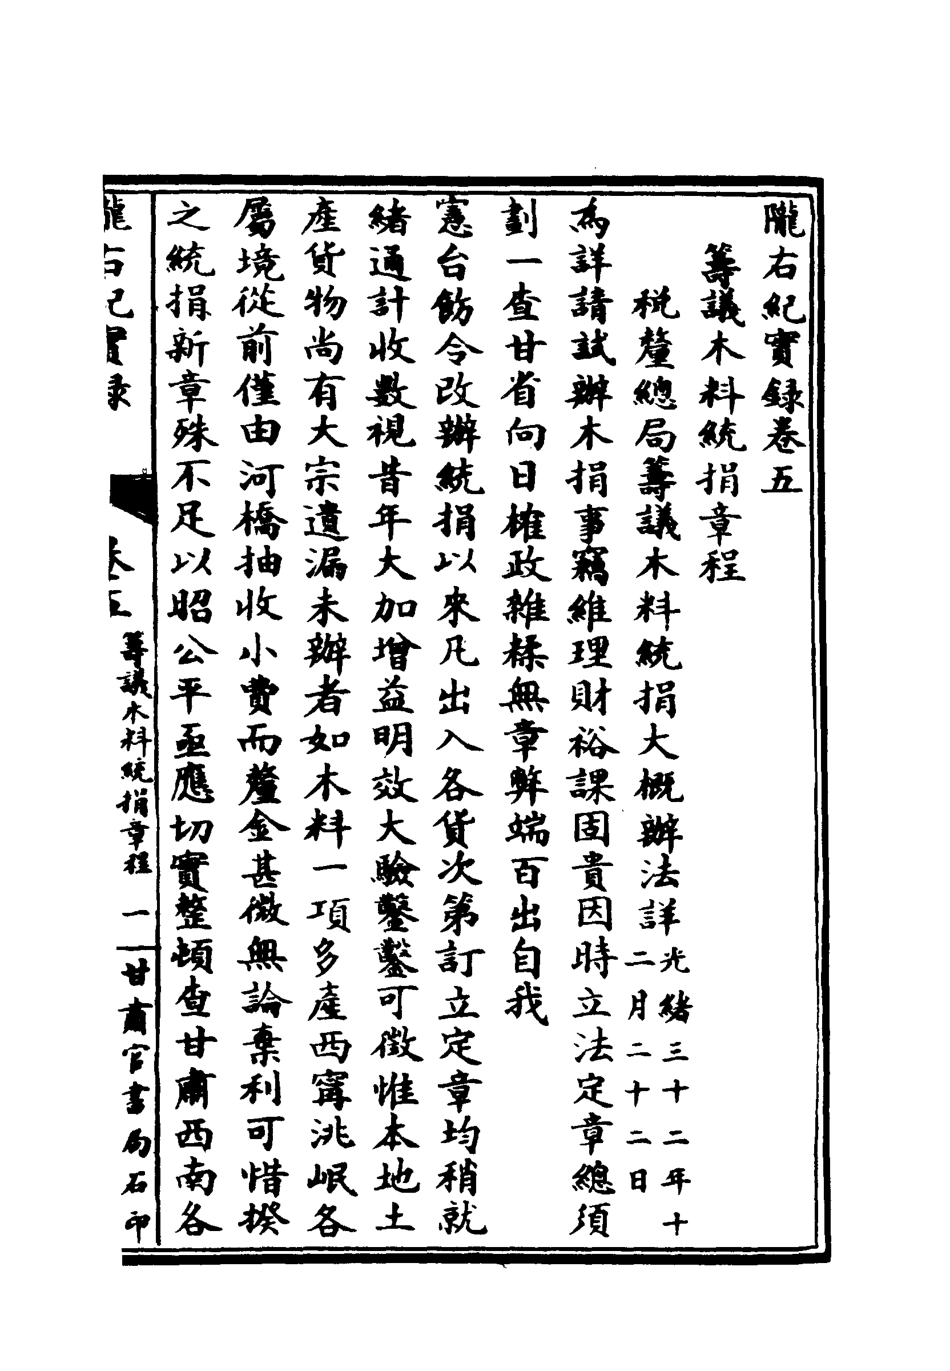 隴右紀實錄卷五
籌議木料統捐章程
稅釐總局籌議木料統捐大概辦法詳光緒三十二年十二月二十二日
為詳請試辦木捐事竊維理財裕課固貴因時立法定章總須
劃一查甘省向日榷政雜糅無章弊端百出自我
憲台飭令改辦統捐以來凡出入各貨次第訂立定章均稍就
緒通計收數視昔年大加增益明效大驗鑿鑿可徵惟本地土
產貨物尚有大宗遺漏未辦者如木料一項多產西寧洮岷各
屬境從前僅由河橋抽收小費而釐金甚微無論棄利可惜揆
之統捐新章殊不足以昭公平亟應切實整頓查甘肅西南各
隴右紀實錄 卷五 籌議木料統捐章程 一 甘肅官書局石印